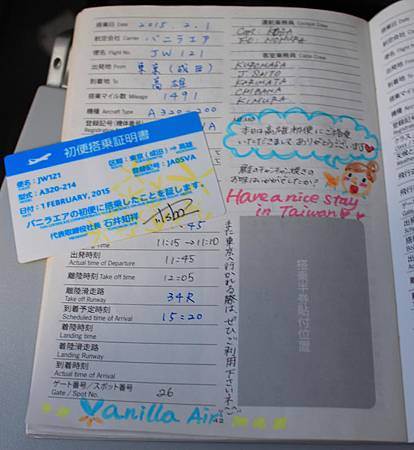 搭乗日 Date 2015.2.1
航空会社 Carrier バニラエア
便名 Flight No. JW121
出発地 From 東京(成田)
到着地 To 高雄
搭乗マイル数 Mileage 1491
機種 Aircraft Type A320-200
登録記号(機体番号)
初便搭乗証明書
便名:JW121
区間:東京(成田)→高雄
型式:A320-214
登録記号:JA05VA
日付:1 FEBRUARY, 2015
バニラエアの初便に搭乗したことを証します。
代表取締役社長 石井知祥
11:15→11:10
出発時刻
Actual time of Departure 11:45
離陸時刻 Take off time 12:05
離陸滑走路
Take off Runway 34R
到着予定時刻
Scheduled time of Arrival 15:20
着陸時刻
Landing time
着陸滑走路
Landing Runway
到着時刻
Actual time of Arrival
ゲート番号/スポット番号
Gate / Spot No. 26
Vanilla Air
運航乗務員 Cockpit Crew
客室乗務員 Cabin Crew
J SAITO
CHIBANA
KIMURA
本日は高雄初便にご搭乗
いただきまして ありがとうございます
Have a nice stay
in Taiwan
また東京へ行かれる際は、ぜひご利用下さいネ
搭乗半券貼付位置